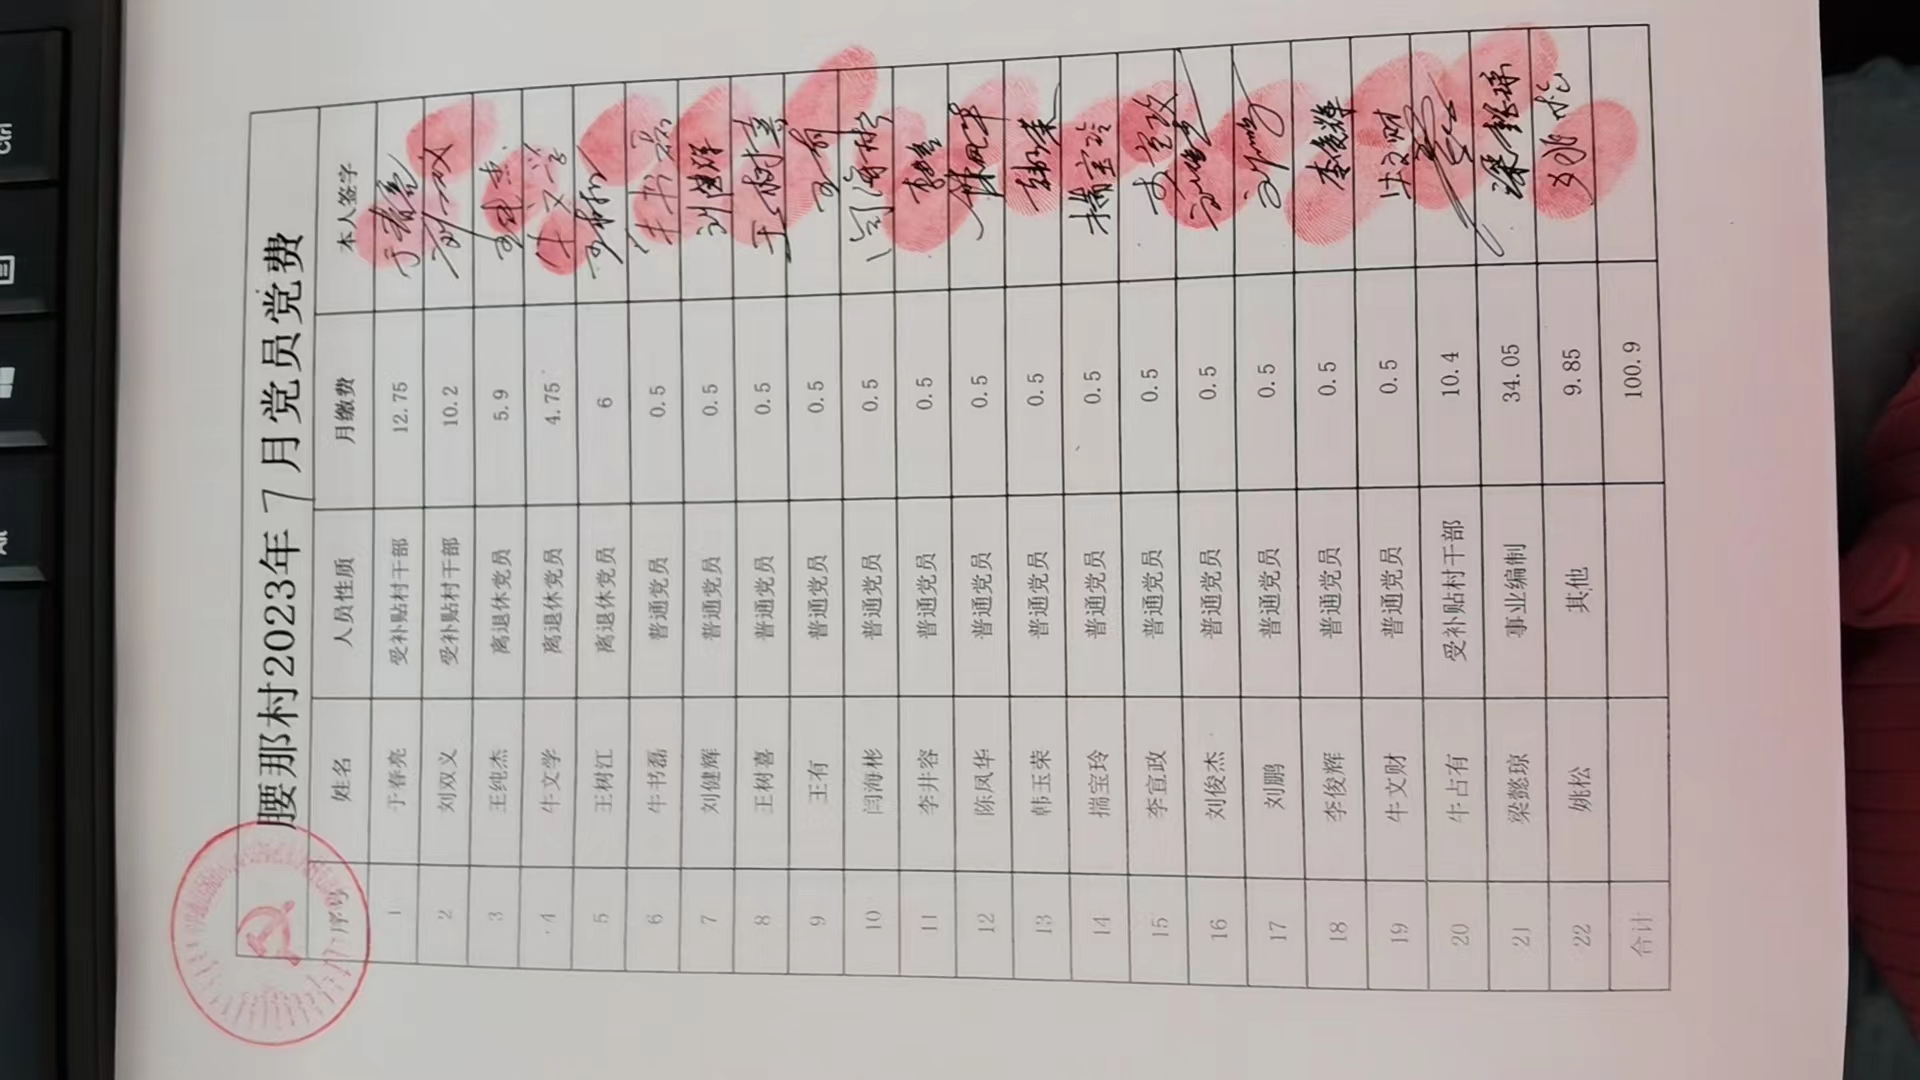 腰那村2023年7月党员党费
序号 姓名 人员性质 月缴费 本人签字
1 于春亮 受补贴村干部 12.75 于春亮
2 刘双义 受补贴村干部 10.2
3 王纯杰 离退休党员 5.9
4 牛文学 离退休党员 4.75 牛文学
5 王树江 离退休党员 6
6 牛书磊 普通党员 0.5 牛书磊
7 刘健辉 普通党员 0.5 刘健辉
8 王树喜 普通党员 0.5 王树喜
9 王有 普通党员 0.5 王有
10 闫海彬 普通党员 0.5 闫海彬
11 李井容 普通党员 0.5
12 陈凤华 普通党员 0.5 陈凤华
13 韩玉荣 普通党员 0.5
14 揣宝玲 普通党员 0.5 揣宝玲
15 李宣政 普通党员 0.5
16 刘俊杰 普通党员 0.5
17 刘鹏 普通党员 0.5 刘鹏
18 李俊辉 普通党员 0.5 李俊辉
19 牛文财 普通党员 0.5 牛文财
20 牛占有 受补贴村干部 10.4
21 梁懿琼 事业编制 34.05
22 姚松 其他 9.85 姚松
合计 100.9
Ctrl
Alt